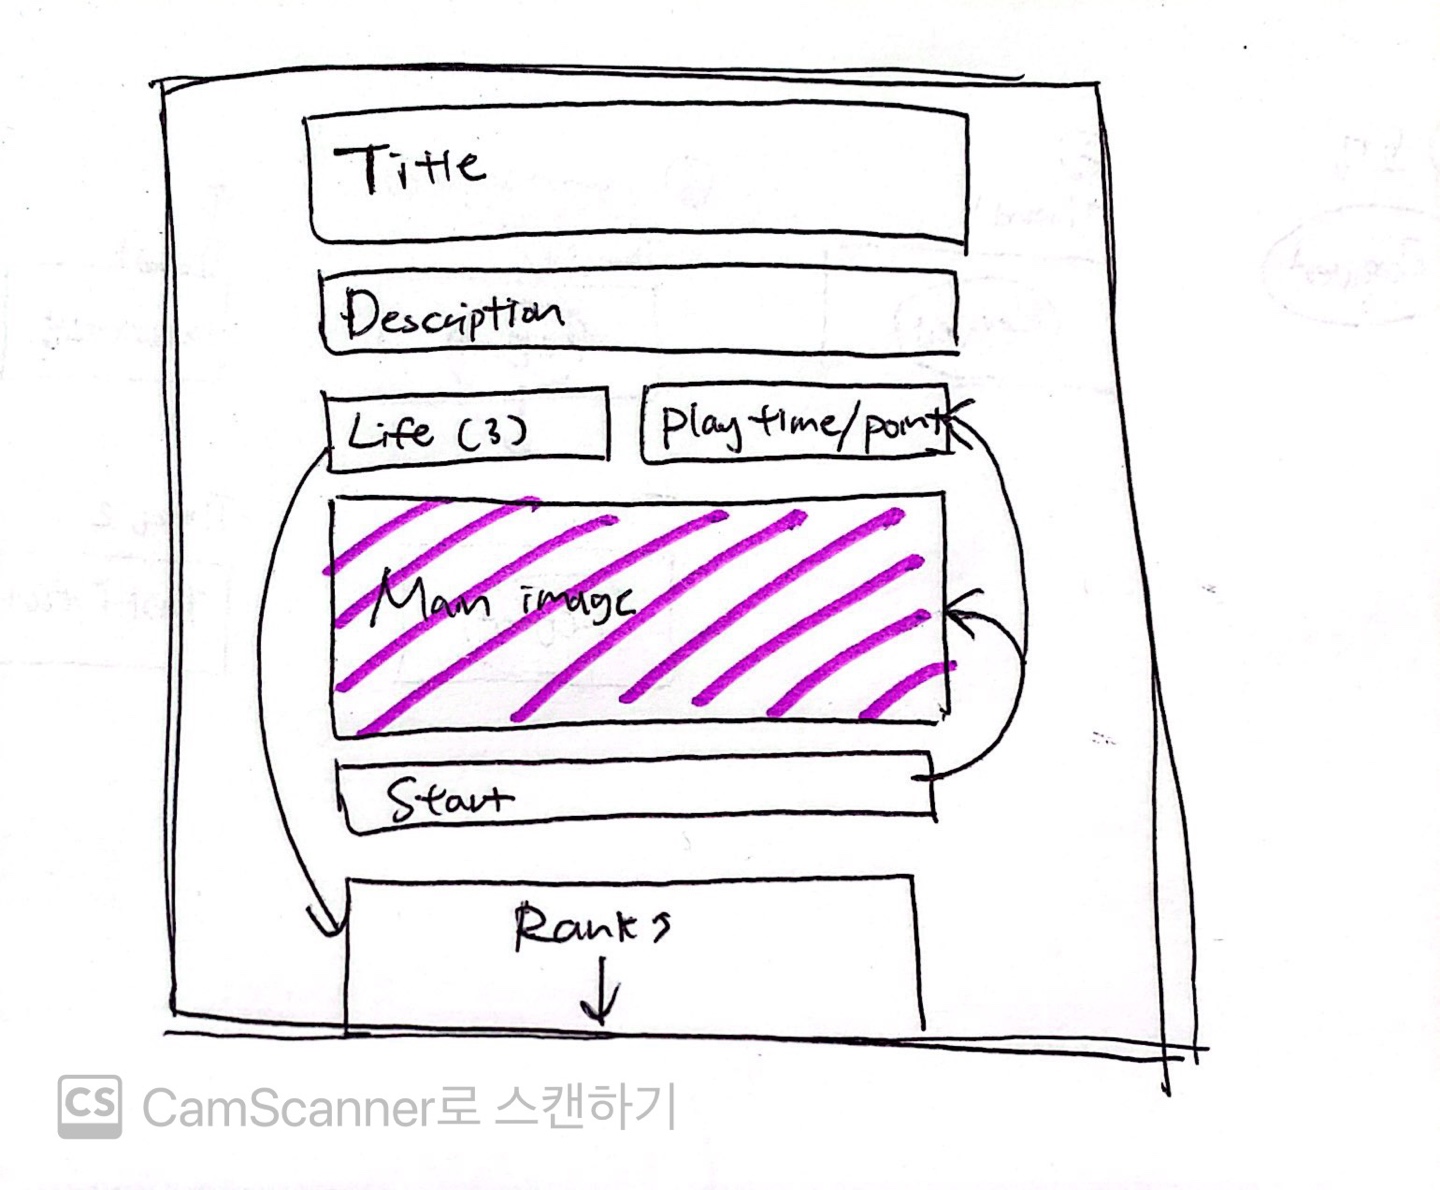 Title
Description
Life (3)
Play time/point
Main image
Start
Ranks
CS CamScanner로 스캔하기